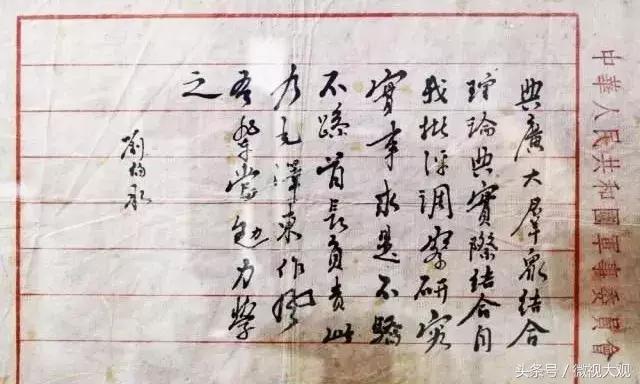 中華人民共和國軍事委員會
與廣大羣眾結合
理論與實際結合自
我批評調察研究
實事求是不驕
不躁首長負責此
乃毛澤東作風
吾輩當勉力學
之
劉伯承
头条号 / 微视大观